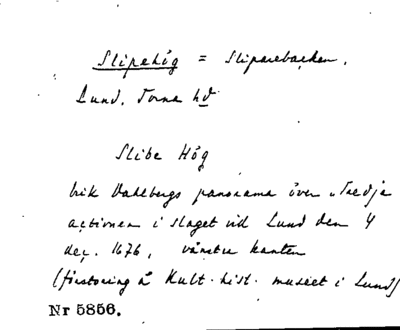 Slipehög = Sliparebacken.
Lund. Torna hd
Slibe Hög
Erik Dahlbergs panorama över "Tredje
actionen i slaget vid Lund den 4
dec. 1676, vänstra kanten
(förstoring å Kult. hist. museet i Lund)
Nr 5856.